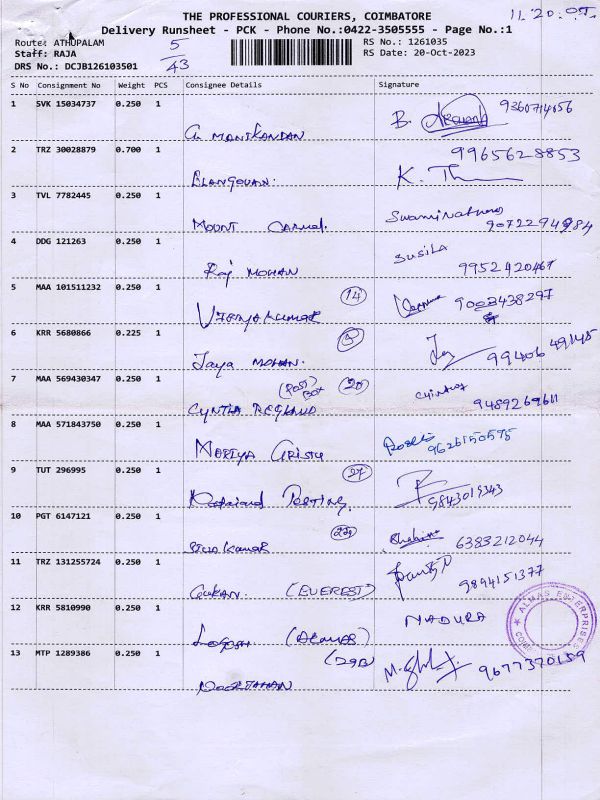 THE PROFESSIONAL COURIERS, COIMBATORE
Delivery Runsheet - PCK - Phone No.:0422-3505555 - Page No.:1
Route: ATHUPALAM 5 RS No.: 1261035
Staff: RAJA RS Date: 20-Oct-2023
DRS No.: DCJB126103501 43
S No Consignment No Weight PCS Consignee Details Signature
1 SVK 15034737 0.250 1 9360714656
G. MANIKANDAN B.
2 TRZ 30028879 0.700 1 9965628853
ELANGOVAN. K.
3 TVL 7782445 0.250 1
MOUNT Carmel. 9072294984
4 DDG 121263 0.250 1 SUSILA
Raj MOHAN 9952420467
5 MAA 101511232 0.250 1 14
VIJAYAKUMAR 9003438297
6 KRR 5680866 0.225 1 5
Jaya MOHAN. 99406 49145
7 MAA 569430347 0.250 1 (POST BOX) 20
CYNTIA 9489269611
8 MAA 571843750 0.250 1
9626150595
9 TUT 296995 0.250 1 27
9843019343
10 PGT 6147121 0.250 1
Siva Kumar 6383212044
11 TRZ 131255724 0.250 1
GUKAN. (EVEREST) 9894151377
12 KRR 5810990 0.250 1 NADURA
ALMAS ENTERPRISES
13 MTP 1289386 0.250 1
9677370159